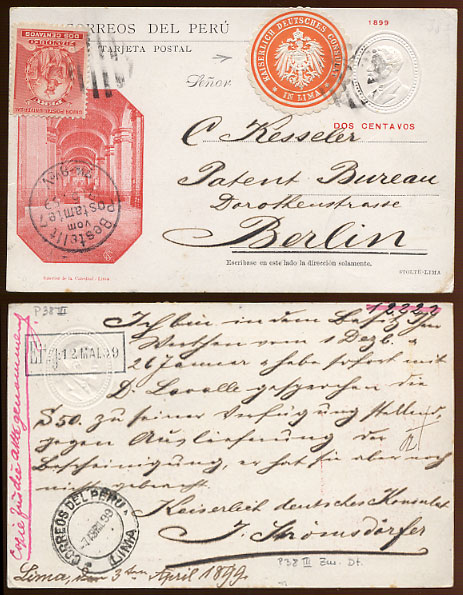 CORREOS DEL PERÚ
TARJETA POSTAL
1899
UNION POSTAL UNIVERSAL
FRANQUEO
DOS CENTAVOS
KAISERLICH DEUTSCHES CONSULAT
IN LIMA
Señor
DOS CENTAVOS
C Kesseler
Patent Bureau
Dorotheenstrasse
Berlin
Bestellt
vom
Postamte 7
Interior de la Catedral - Lima
Escríbase en este lado la dirección solamente.
STOLTE-LIMA
P38 III
12323
Ich bin in den Besitz Ihrer
Werthen vom 1 Dezb. &
26 Januar habe sofort mit
D. Lavalle gesprochen die
S50. zu seiner Verfügung stellend
gegen Auslieferung der
Bescheinigung, er hat sie aber noch
nicht gebracht.
Kaiserlich deutsches Konsulat
J. Strömsdörfer
12 MAI. 99
Copie zu die akte genommen
CORREOS DEL PERU
LIMA
P38 III Zw. Dt.
Lima, den 3ten April 1899.